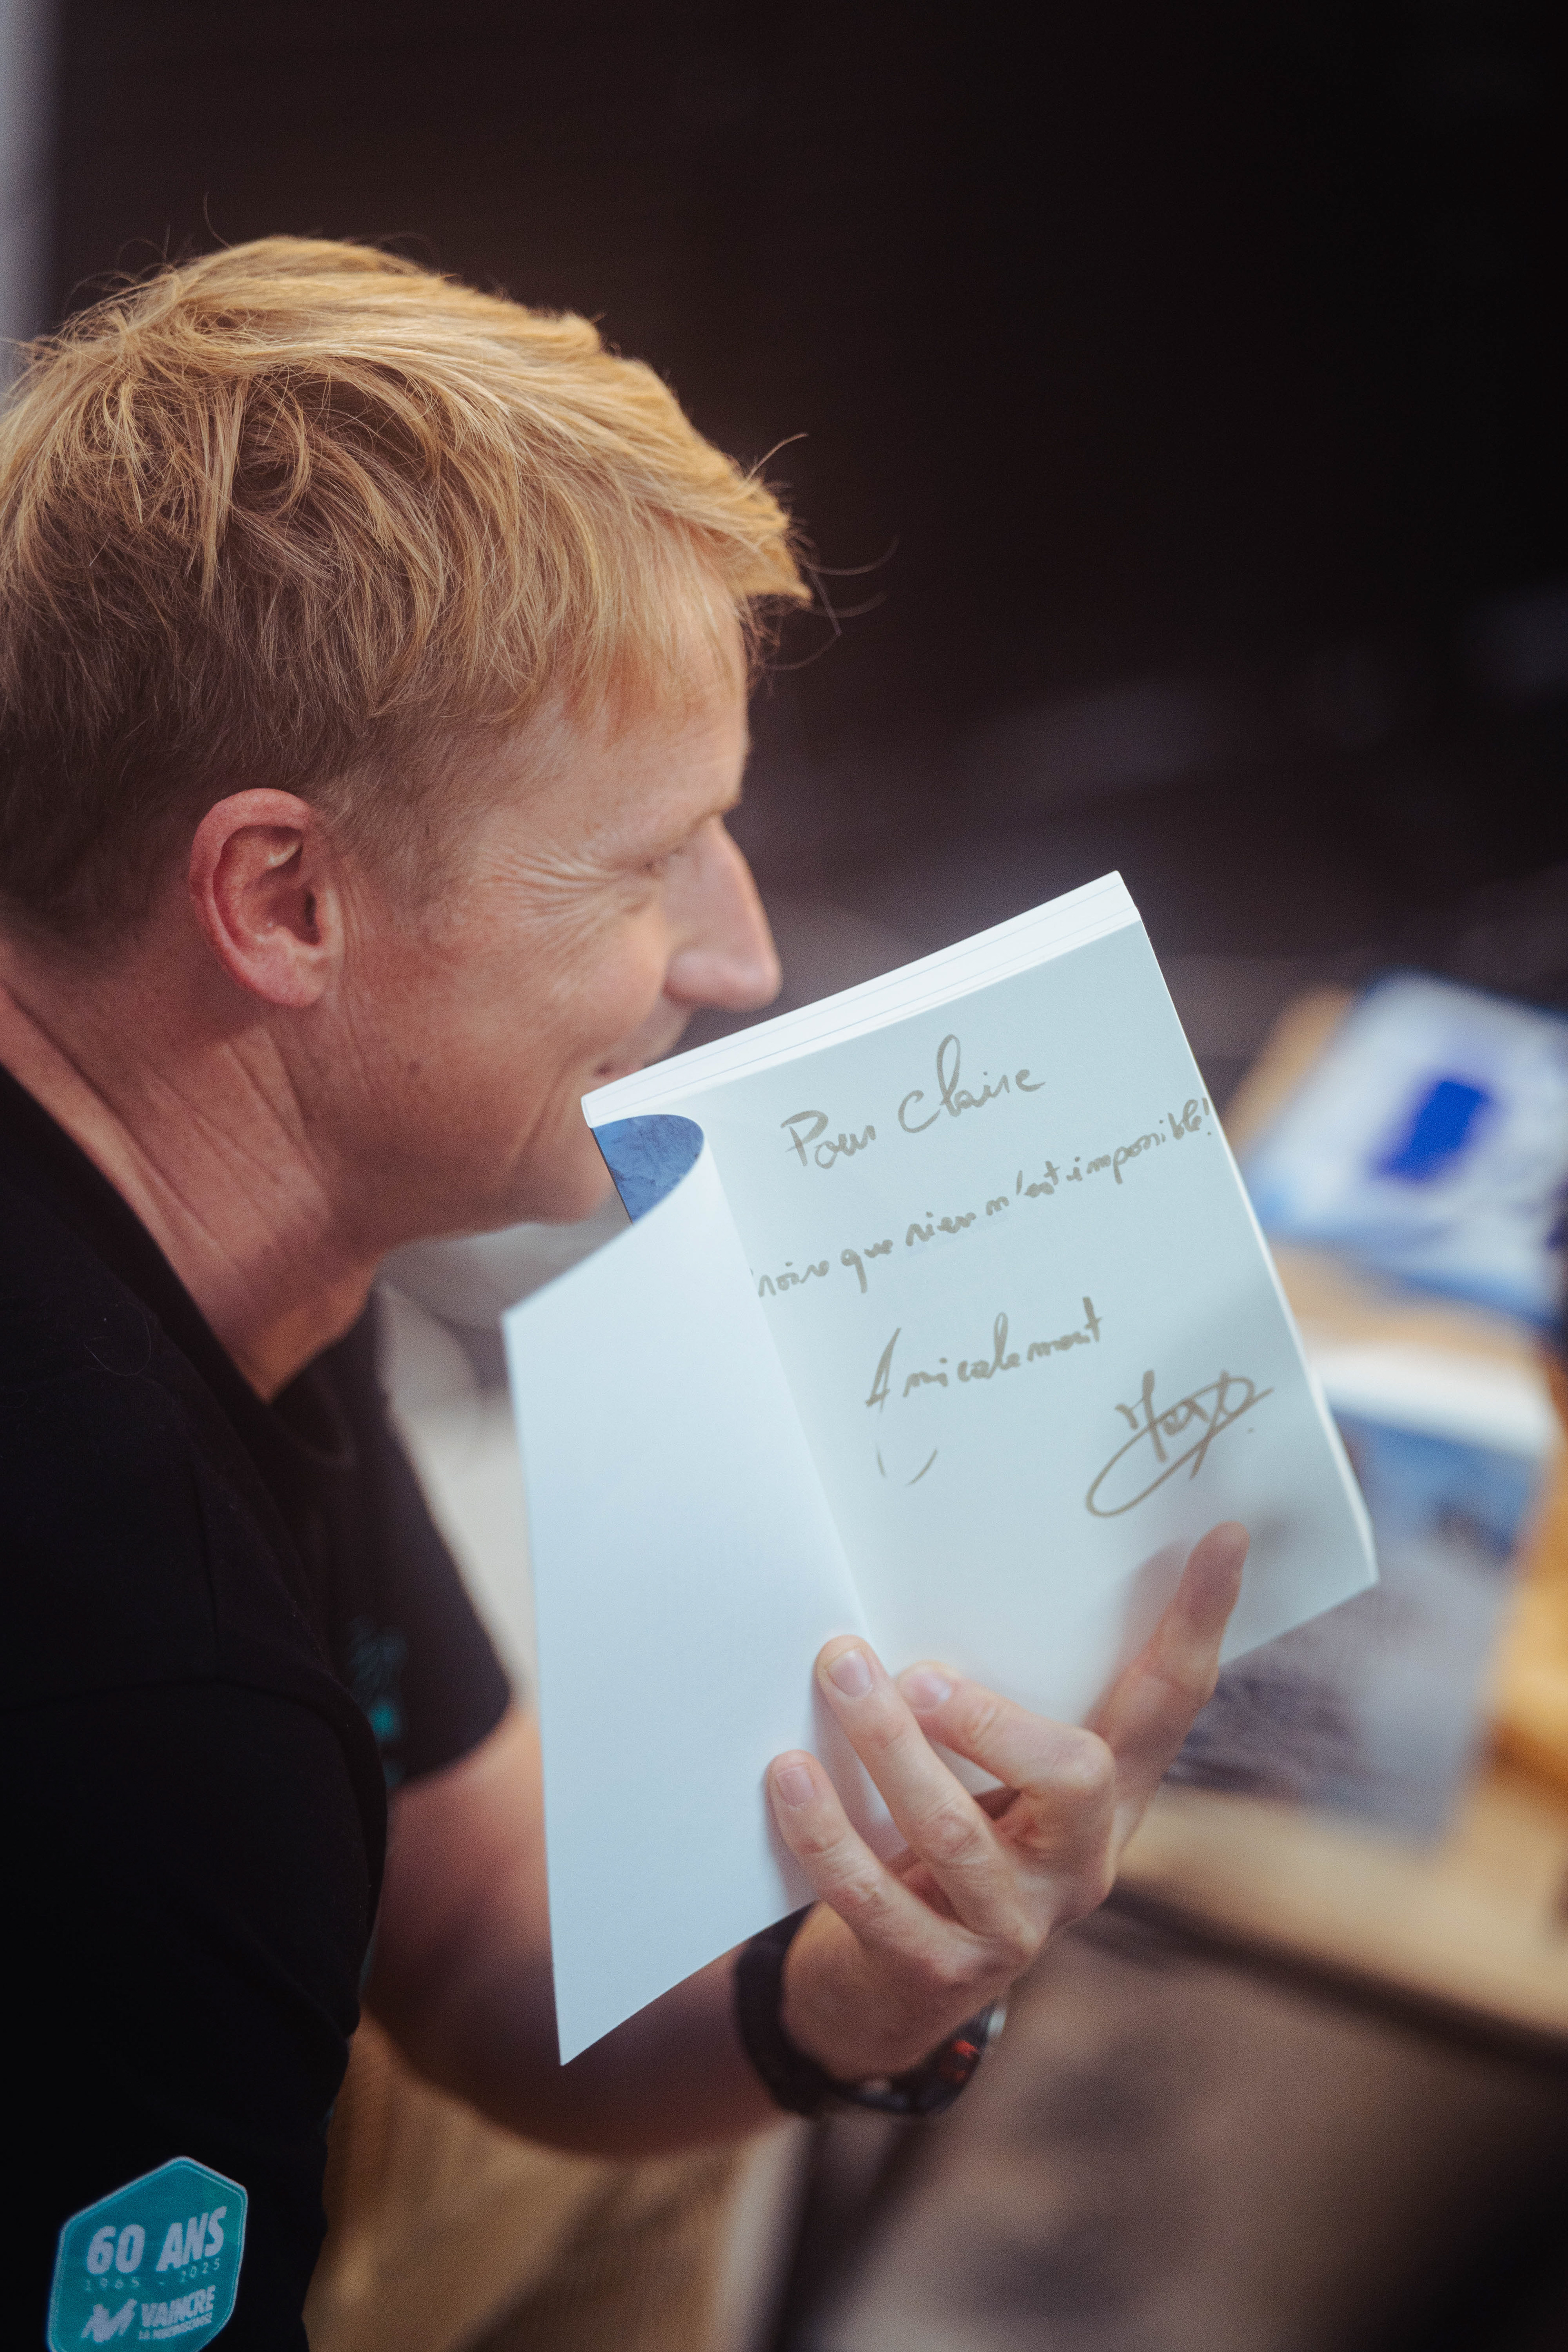 Pour Claire
croire que rien n'est impossible!
Amicalement
60 ANS
1965 - 2025
VAINCRE
LA MUCOVISCIDOSE